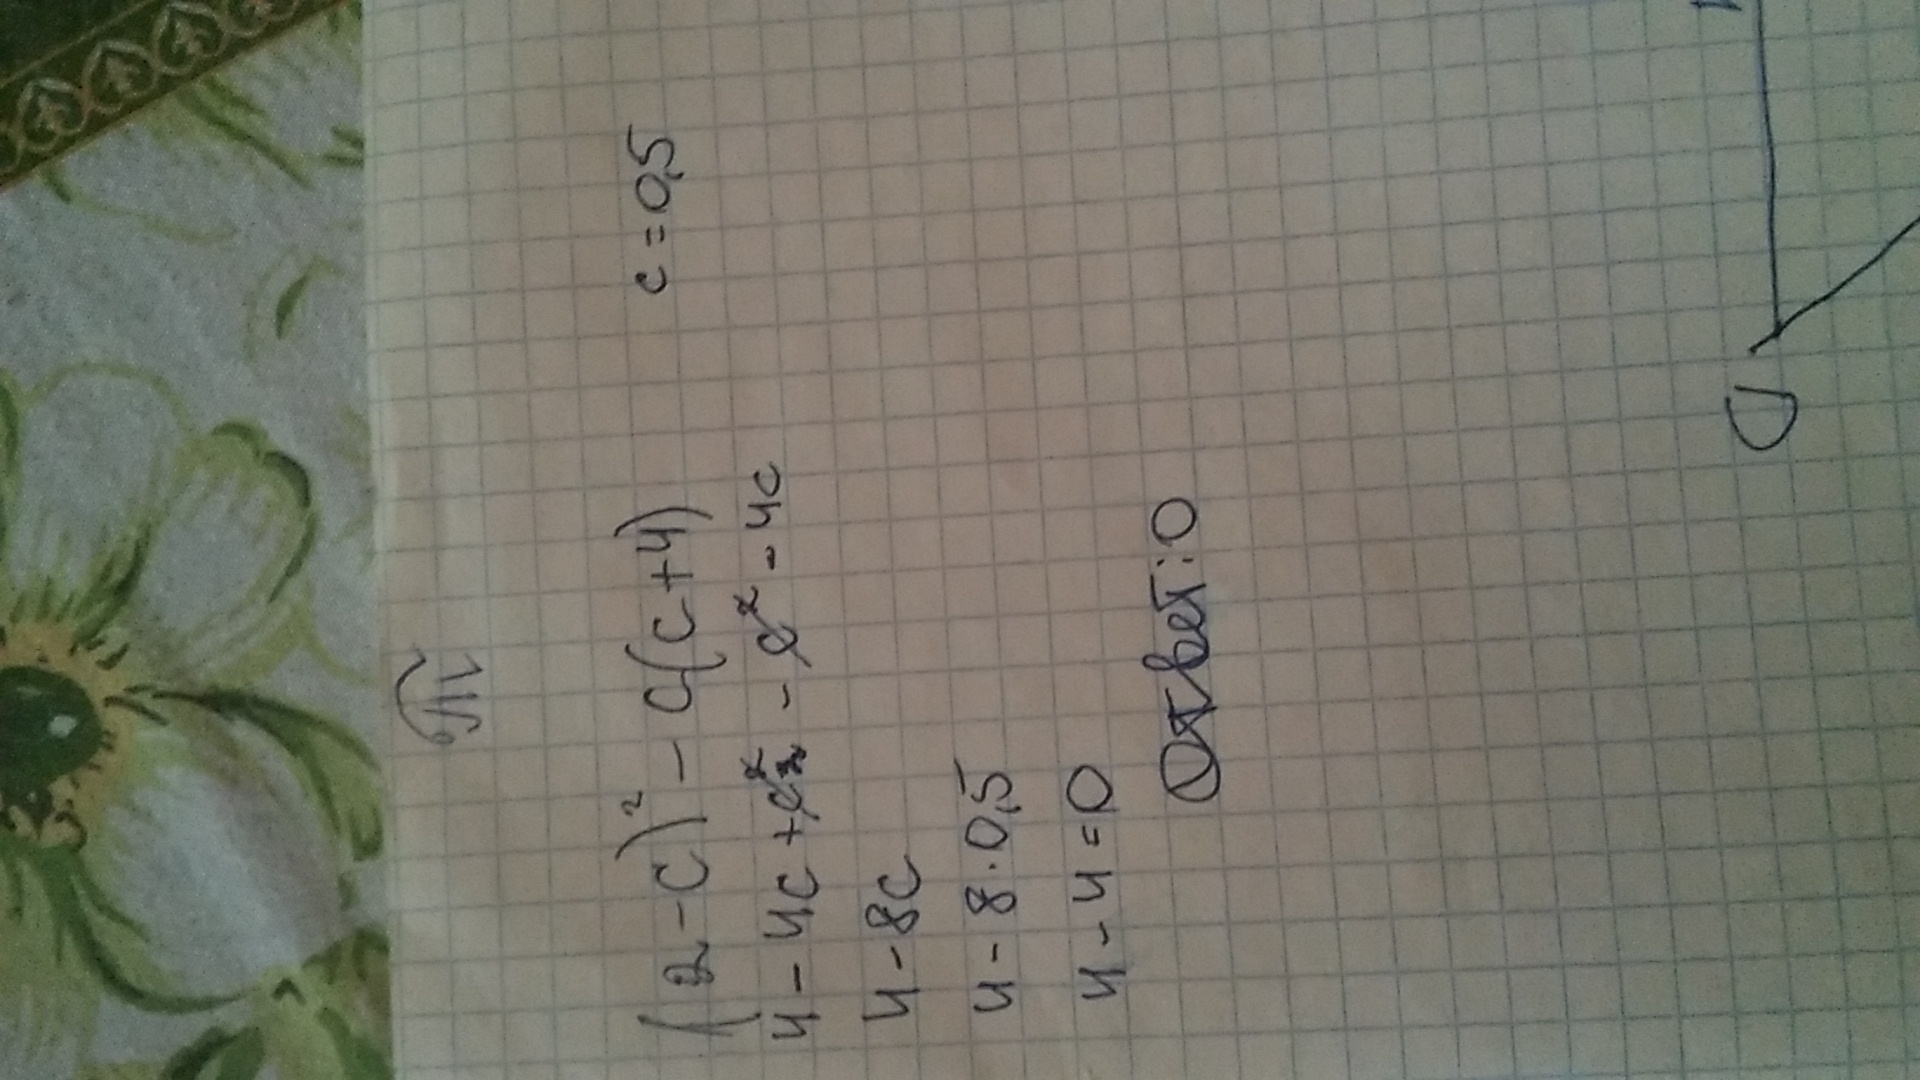 (2-c)² - c(c+4) c=0,5
4-4c+c²-c²-4c
4-8c
4-8·0,5
4-4=0
Ответ: 0